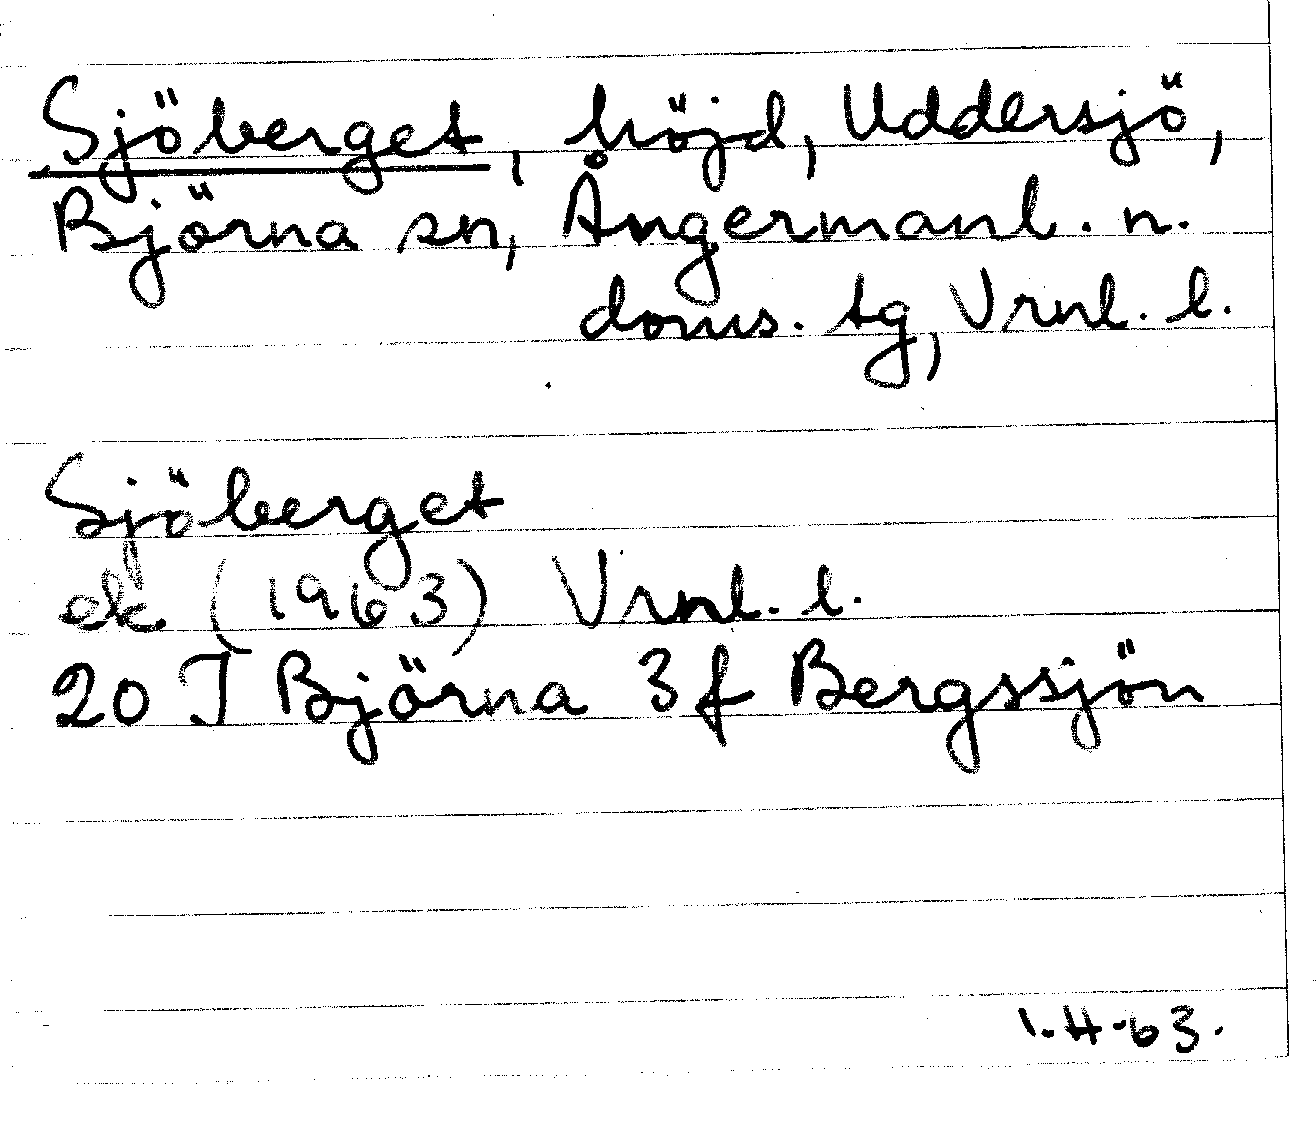 Sjöberget, höjd, Uddersjö,
Björna sn, Ångermanl. n.
doms. tg, Vrnl. l.
Sjöberget
ek (1963) Vrnl. l.
20 J Björna 3 f Bergssjön
1.4.63.